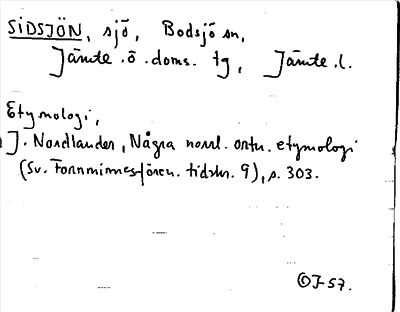 SIDSJÖN, sjö, Bodsjö sn,
Jämte. ö. doms. tg, Jämte. l.
Etymologi,
J. Nordlander, Några norrl. ortn. etymologi
(Sv. Fornminnesfören. tidskr. 9), s. 303.
OJ-57.